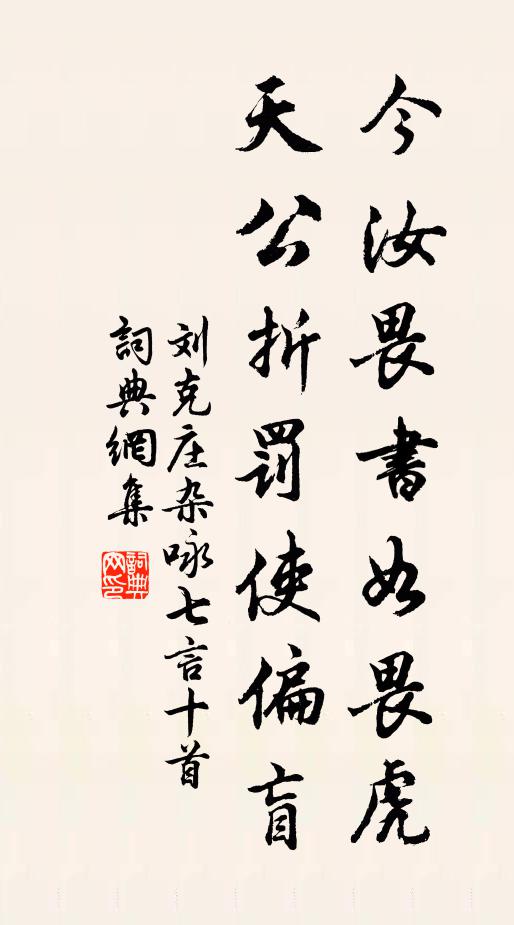 今汝畏書如畏虎
天公折罰使偏盲
刘克庄杂咏七言十首
詞典網集
詞典网印